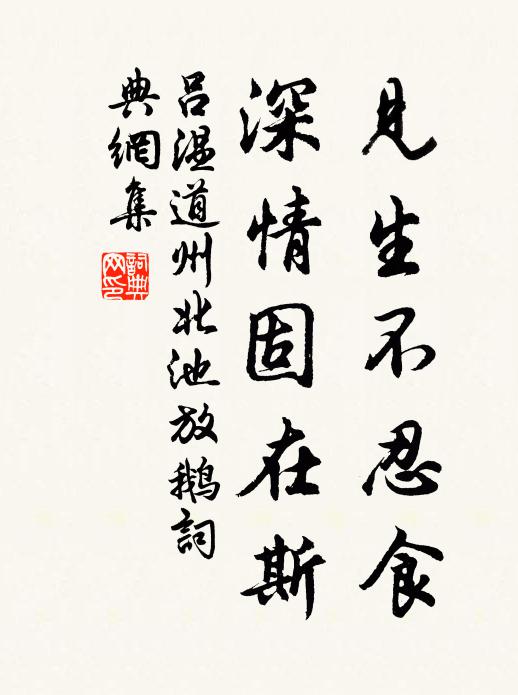 見生不忍食
深情固在斯
吕温道州北池放鵝詞
典網集
詞典網印